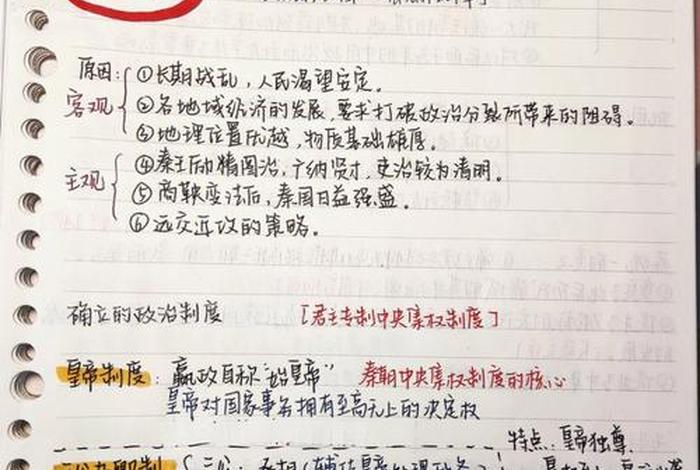 原因：①长期战乱，人民渴望安定。
客观 ②各地域经济的发展，要求打破政治分裂所带来的阻碍。
③地理位置优越，物质基础雄厚。
主观 ④秦王励精图治，广纳贤才，吏治较为清明。
⑤商鞅变法后，秦国日益强盛。
⑥远交近攻的策略。
确立的政治制度 [君主专制中央集权制度]
皇帝制度：嬴政自称“始皇帝” 秦朝中央集权制度的核心
皇帝对国家事务拥有至高无上的决定权
特点：皇帝独尊